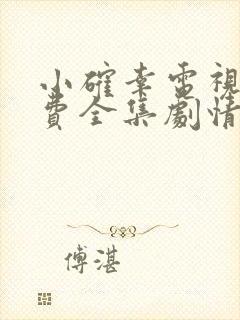 小確幸電視
費全集劇情
傅湛